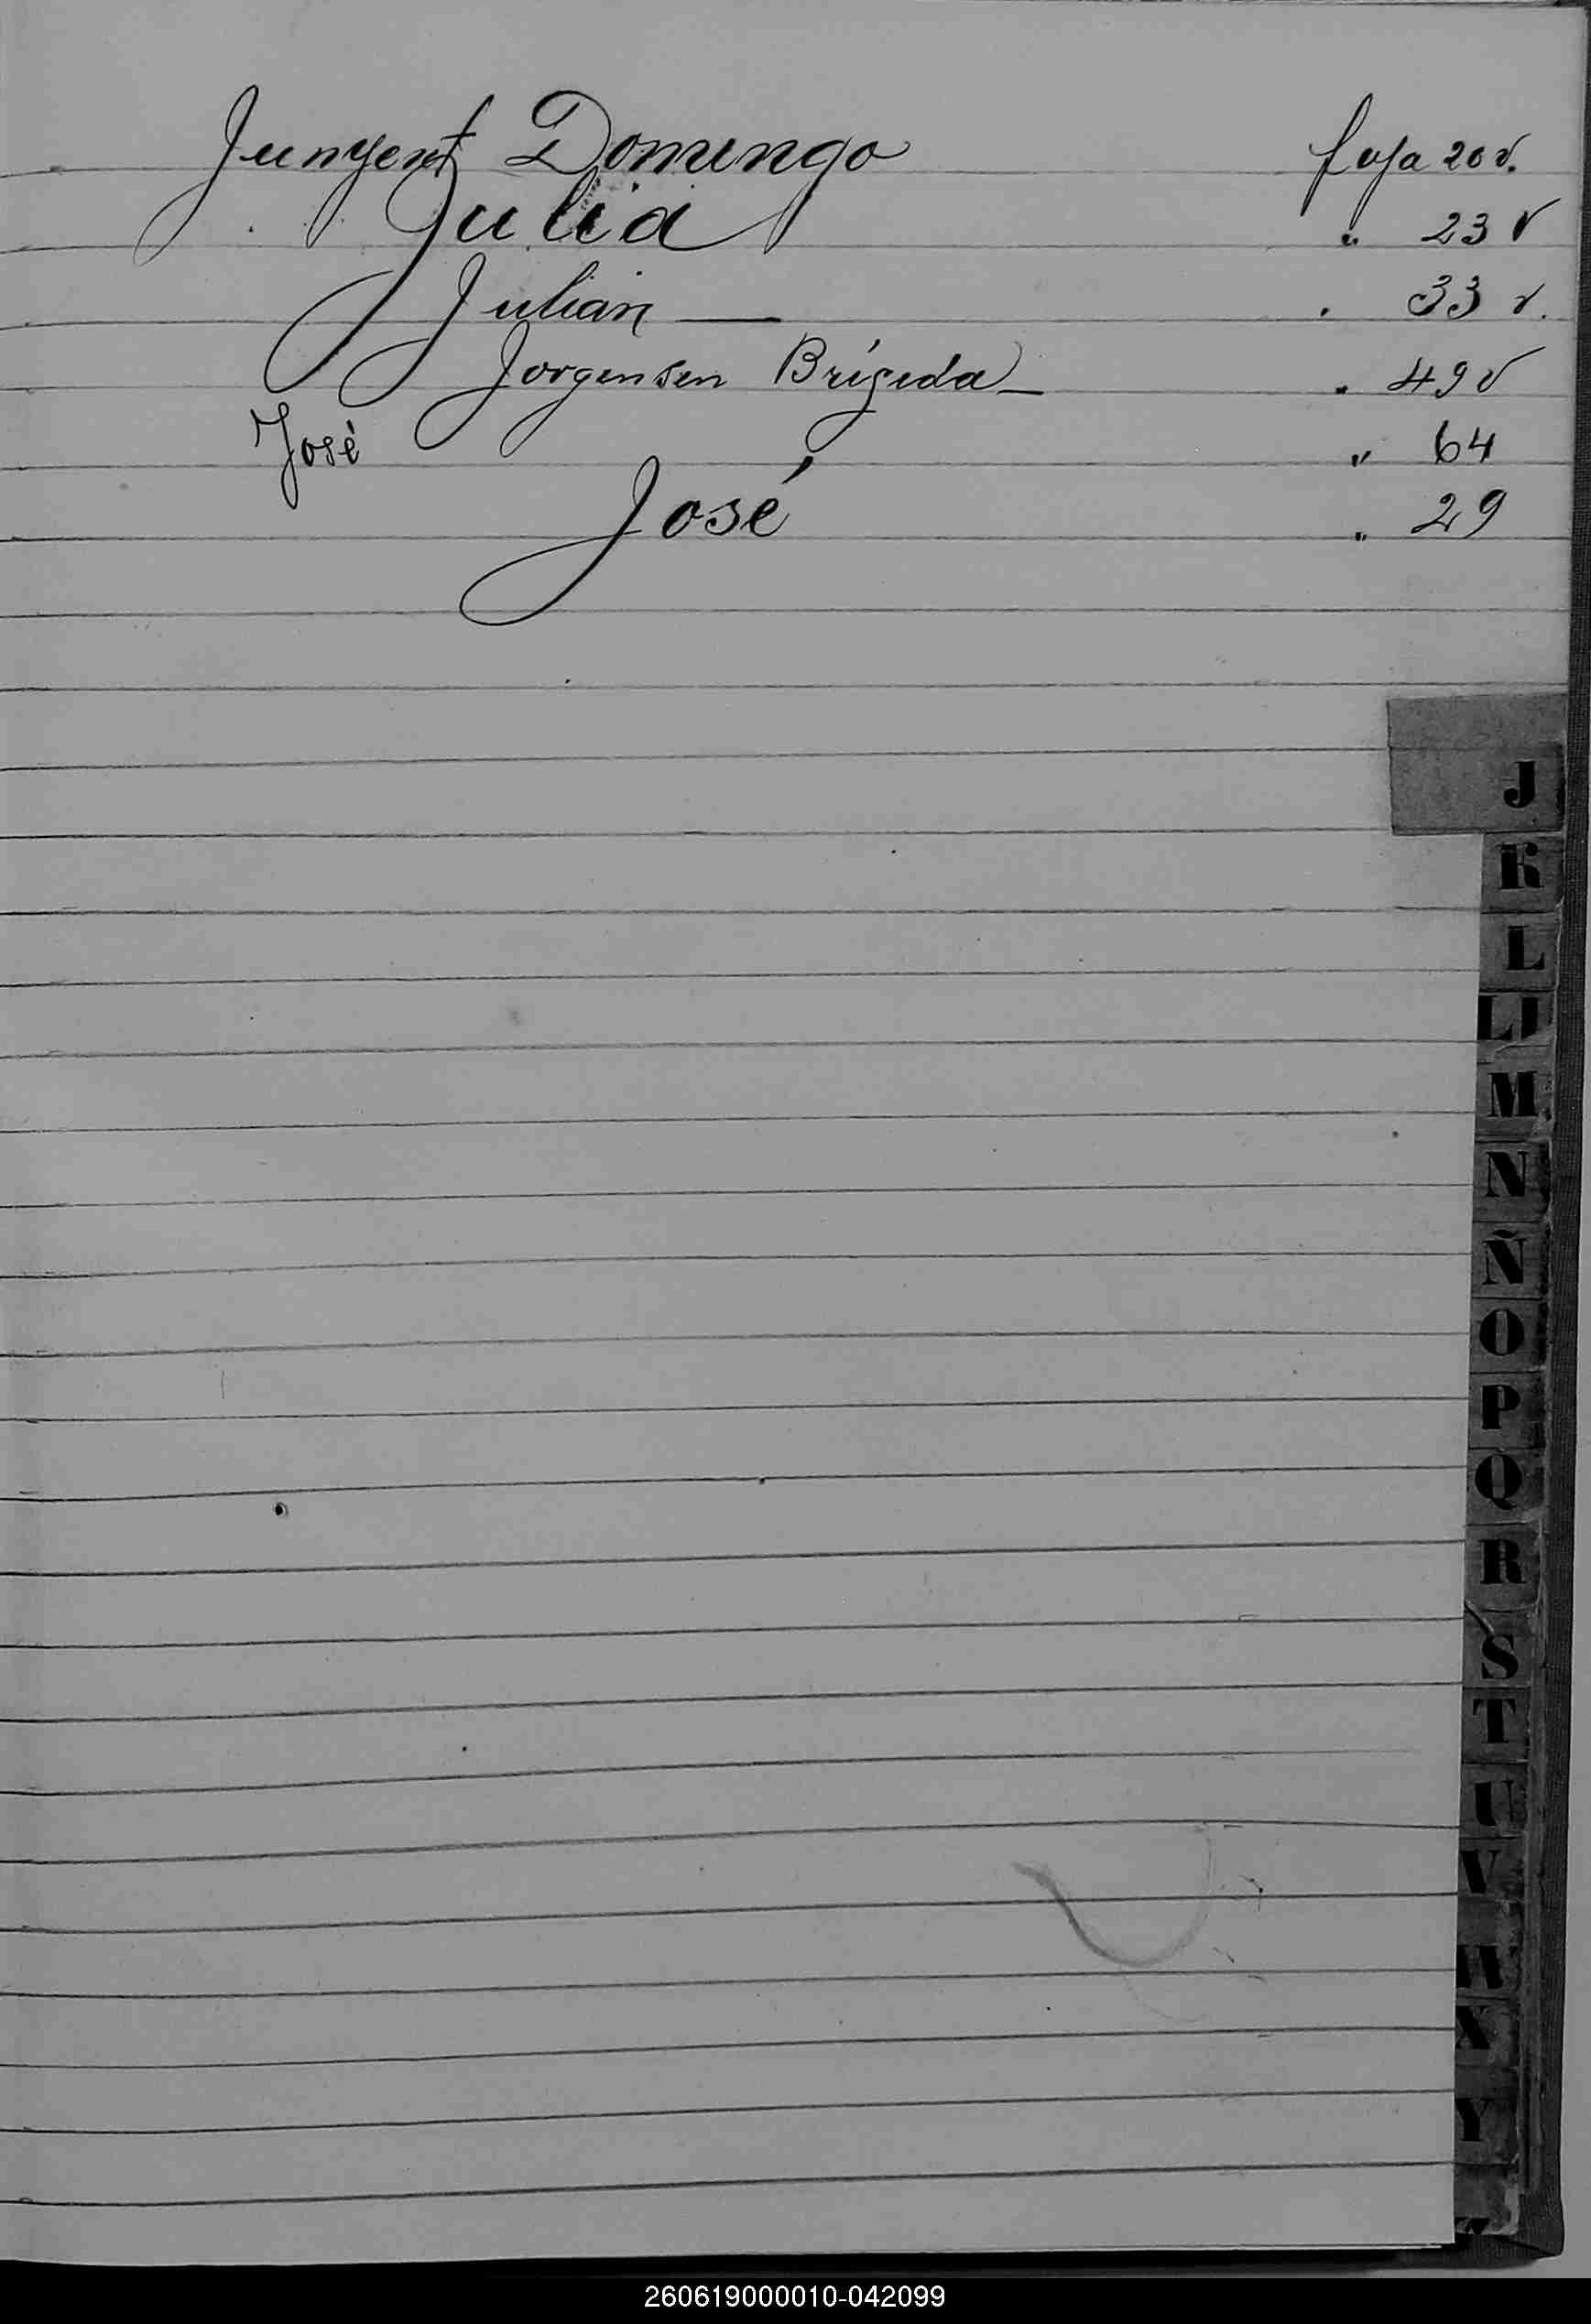 Junyent Domingo foja 20 v.
Julia " 23 v
Julian — " 33 v.
Jorgensen Brígida — " 49 v
José " 64
José " 29
J
K
L
Ll
M
N
Ñ
O
P
Q
R
S
T
U
V
W
X
Y
260619000010-042099